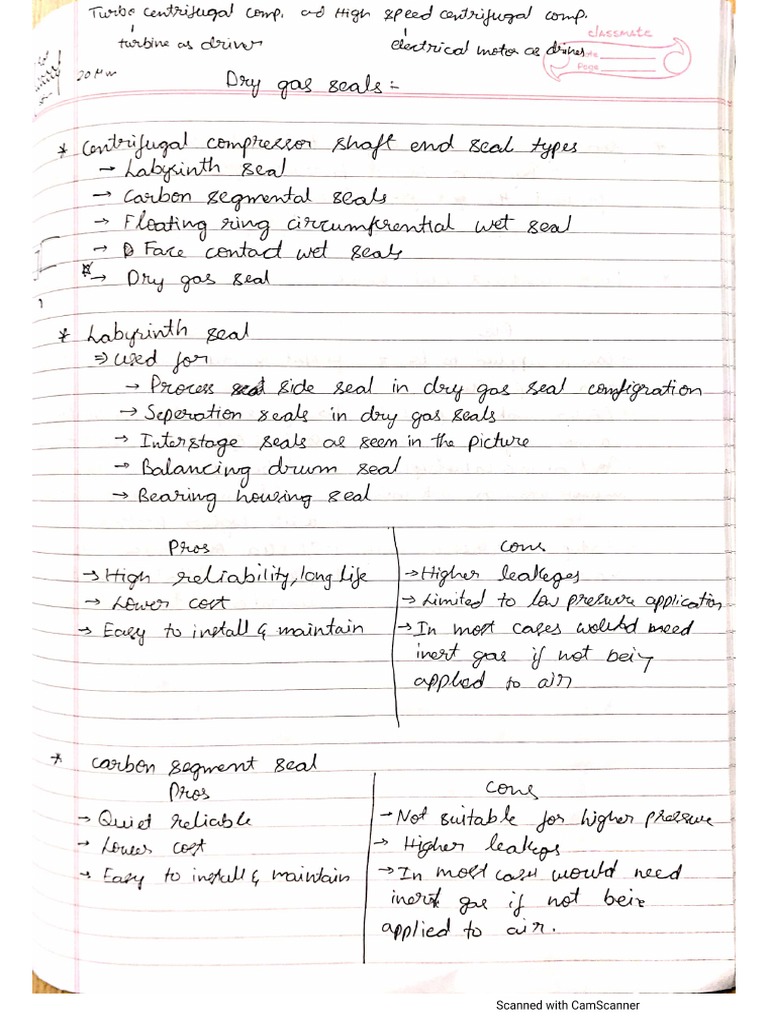 Turbo centrifugal comp. ad High speed centrifugal comp.
turbine as driver
electrical motor as drives
classmate
Date
Page
20 μm
Dry gas seals:-
* Centrifugal compressor shaft end seal types
→ Labyrinth seal
→ Carbon segmental seals
→ Floating ring circumferential wet seal
→ Face contact wet seals
→ Dry gas seal
* Labyrinth seal
⇒ used for
→ Process side seal in dry gas seal configration
→ Seperation seals in dry gas seals
→ Interstage seals as seen in the picture
→ Balancing drum seal
→ Bearing housing seal
Pros
→ High reliability, long life
→ Lower cost
→ Easy to install & maintain
Cons
→ Higher leakeges
→ Limited to low pressure application
→ In most cases would need
inert gas if not being
applied to air
* Carbon segment seal
Pros
→ Quiet reliable
→ Lower cost
→ Easy to install & maintain
Cons
→ Not suitable for higher pressure
→ Higher leakeges
→ In most cases would need
inert gas if not being
applied to air.
Scanned with CamScanner